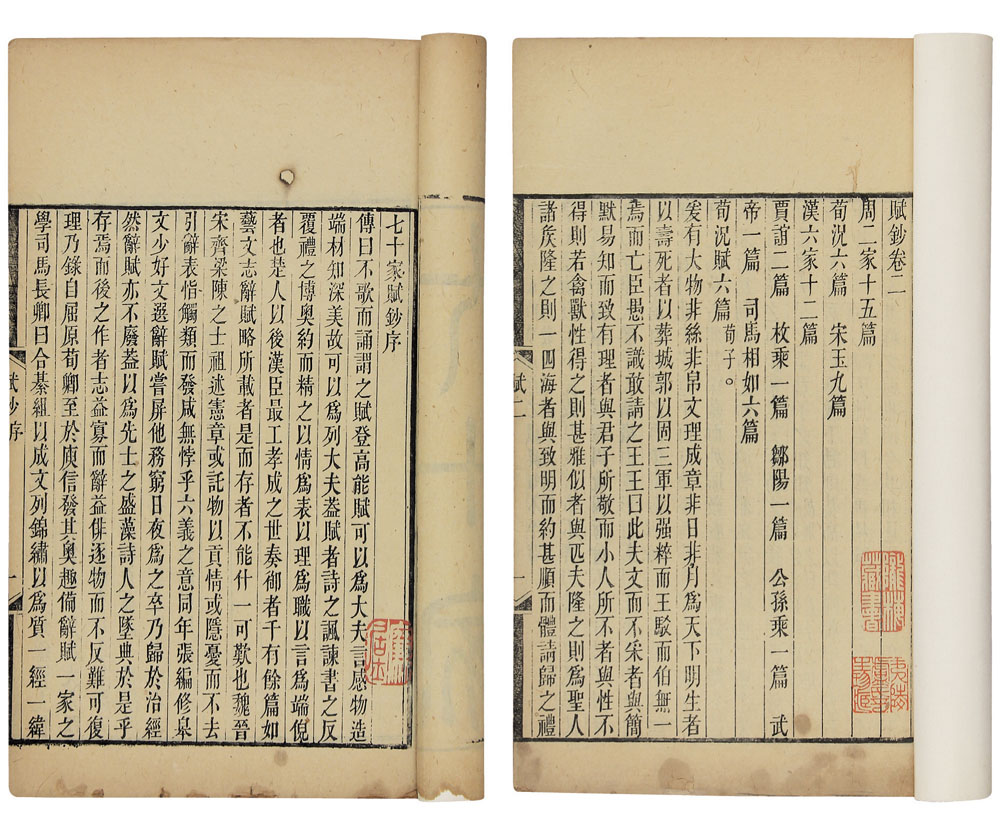 七十家賦鈔序
傳曰不歌而誦謂之賦登高能賦可以爲大夫言感物造
端材知深美故可以爲列大夫葢賦者詩之諷諫書之反
覆禮之博奧約而精之以情爲表以理爲職以言爲端倪
者也楚人以後漢臣最工孝成之世奏御者千有餘篇如
藝文志辭賦略所載者是而存者不能什一可歎也魏晉
宋齊梁陳之士祖述憲章或託物以貢情或隱憂而不去
引辭表恉觸類而發咸無悖乎六義之意同年張編修臯
文少好文選辭賦嘗屏他務窮日夜爲之卒乃歸於治經
然辭賦亦不廢葢以爲先士之盛藻詩人之墜典於是乎
存焉而後之作者志益寡而辭益俳逐物而不反難可復
理乃錄自屈原荀卿至於庾信發其奧趣備辭賦一家之
學司馬長卿曰合綦組以成文列錦繡以爲質一經一緯
賦鈔序 一
賦鈔卷二
周二家十五篇
荀況六篇 宋玉九篇
漢六家十二篇
賈誼二篇 枚乘一篇 鄒陽一篇 公孫乘一篇 武
帝一篇 司馬相如六篇
荀況賦六篇 荀子。
爰有大物非絲非帛文理成章非日非月爲天下明生者
以壽死者以葬城郭以固三軍以强粹而王駁而伯無一
焉而亡臣愚不識敢請之王王曰此夫文而不采者與簡
默易知而致有理者與君子所敬而小人所不者與性不
得則若禽獸性得之則甚雅似者與匹夫隆之則爲聖人
諸矦隆之則一四海者與致明而約甚順而體請歸之禮
賦二